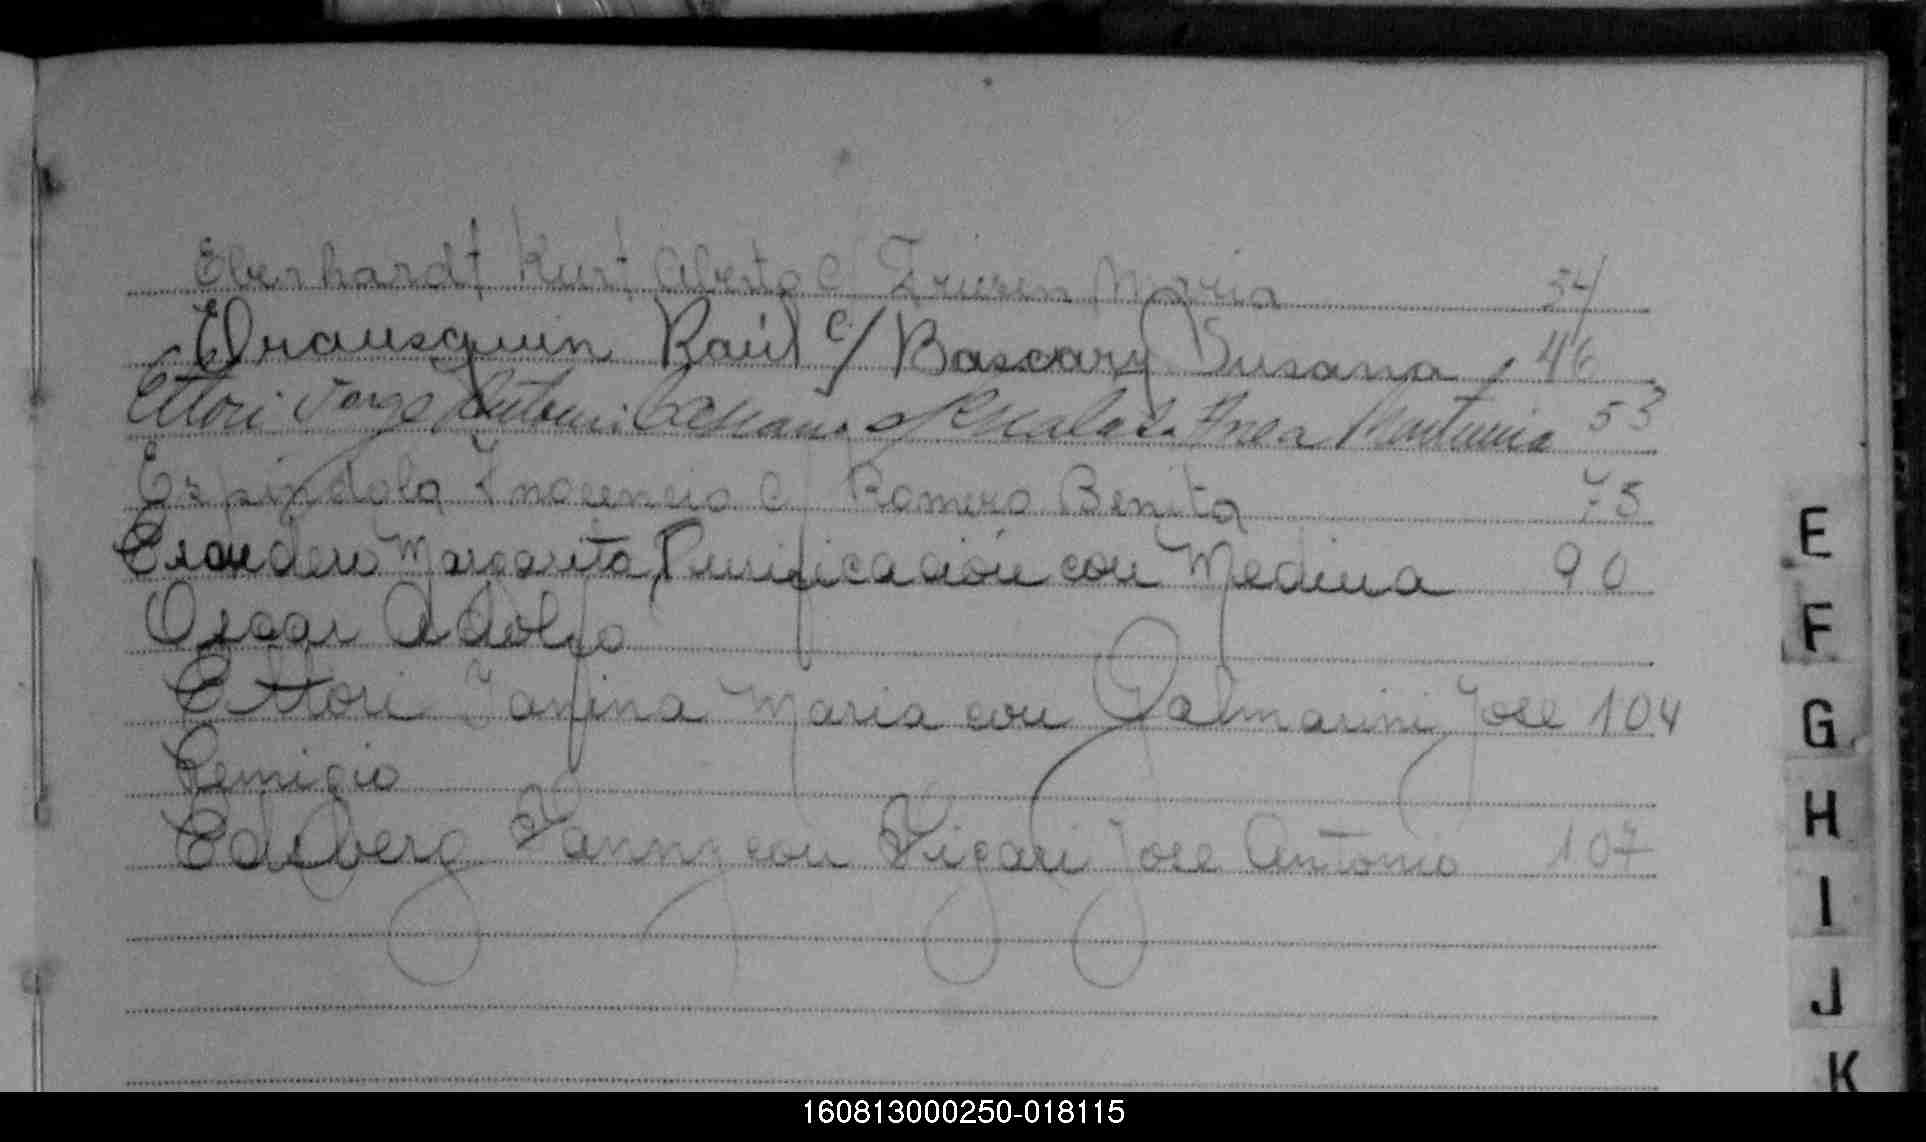 Eberhardt Kurt Alberto c/ Friesen Maria 34
Eurausquin Raúl c/ Bascary Susana 46
Ettori Jorge Antonio c/ Ines 53
Espindola Inocencio c/ Romero Benita 75
Escudero Margarita Purificación con Medina 90
Oscar Adolfo
Ettori Janina Maria con Palmarini Jose 104
Remigio
Edelberg Fanny con Figari Jose Antonio 107
E
F
G
H
I
J
K
160813000250-018115